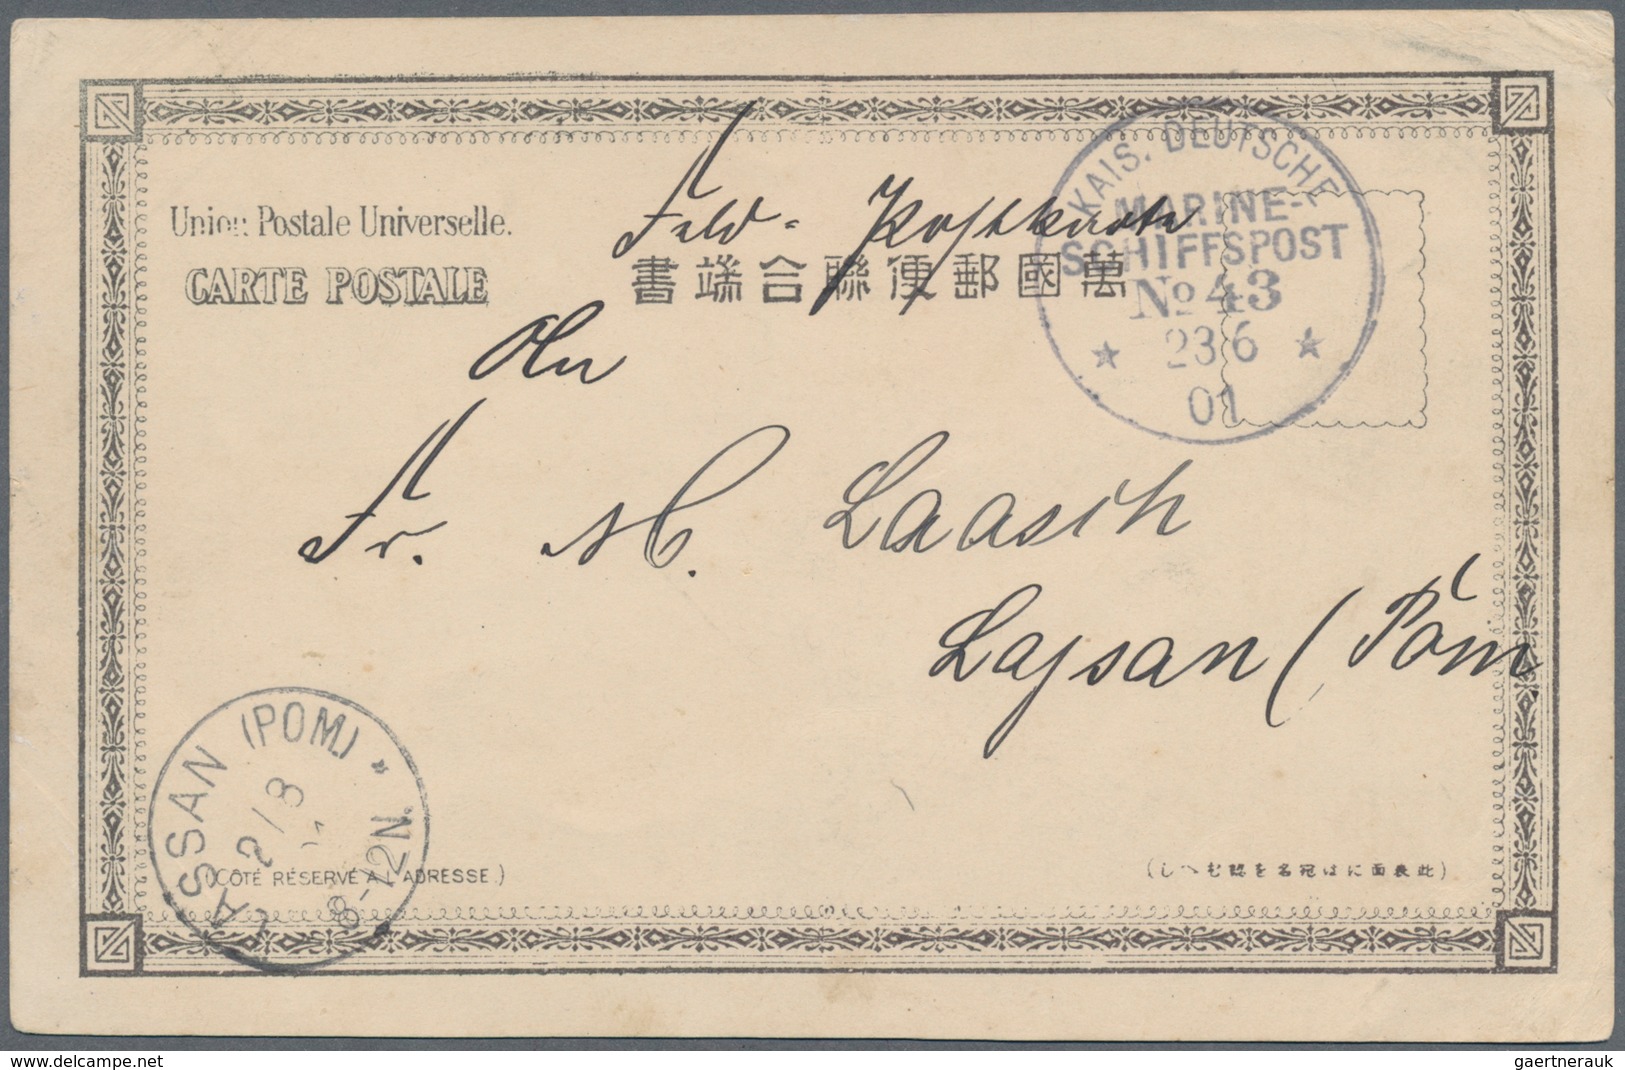 KAIS. DEUTSCHE
MARINE-
SCHIFFSPOST
No 43
23 6
01
Union Postale Universelle.
Feld = Postkarte
CARTE POSTALE
書端合聯便郵國萬
An
Fr. M. Laasch
Lassan (Pom
LASSAN (POM.) *
2/8
8-12N.
(CÔTÉ RÉSERVÉ A L'ADRESSE.)
(しへむ認を名宛はに面表此)
delcampe.net
gaertnerauk